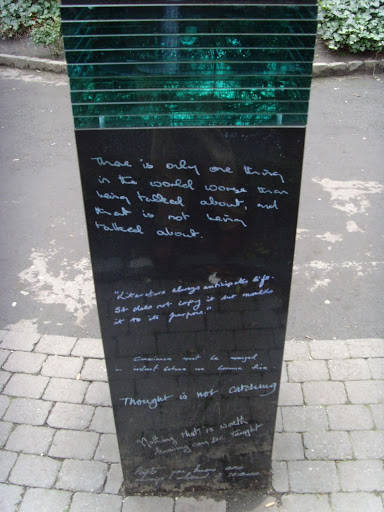 There is only one thing
in the world worse than
being talked about, and
that is not being
talked about.
"Literature always anticipates life.
It does not copy it but moulds
it to its purpose."
Conscience must be merged
in instinct before we become fine
Thought is not catching
"Nothing that is worth
knowing can be taught